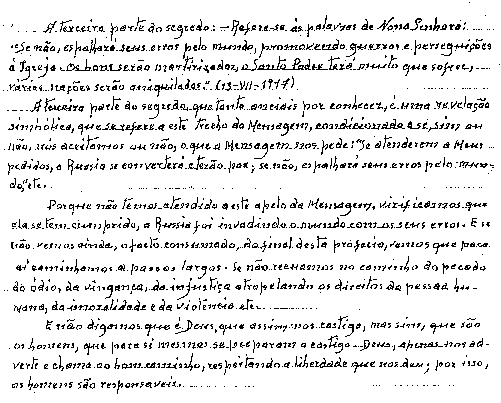 A terceira parte do segredo: - Refere-se às palavras de Nossa Senhora:
"Se não, espalhará seus erros pelo mundo, promovendo guerras e perseguições
à Igreja. Os bons serão martirizados, o Santo Padre terá muito que sofrer,
várias nações serão aniquiladas." (13-VII-1917)
A terceira parte do segredo, que tanto anciais por conhecer, é uma revelação
simbólica, que se refere a este trecho da Mensagem, condicionado a se, sim ou
não, nós acèitamos ou não, o que a Mensagem nos pede: "Se atenderem a Meus
pedidos, a Russia se converterá e terão paz; se não, espalhará seus erros pelo mun-
do," etc.
Porque não temos atendido a este apelo da Mensagem, verificamos que
ela se tem cumprido, a Russia foi invadindo o mundo com os seus erros. E se
não vemos ainda, o facto consumado, do final desta profecia, vemos que para
aí caminhamos a passos largos. Se não recuarmos no caminho do pecado
do ódio, da vingança, da injustiça atropelando os direitos da pessoa hu-
mana, da imoralidade e da violência etc.
E não digamos que é Deus, que assim nos castiga, mas sim, que são
os homens, que para si mesmos se preparam o castigo. Deus, apenas nos ad-
verte e chama ao bom caminho, respeitando a liberdade que nos deu; por isso,
os homens são responsaveis.